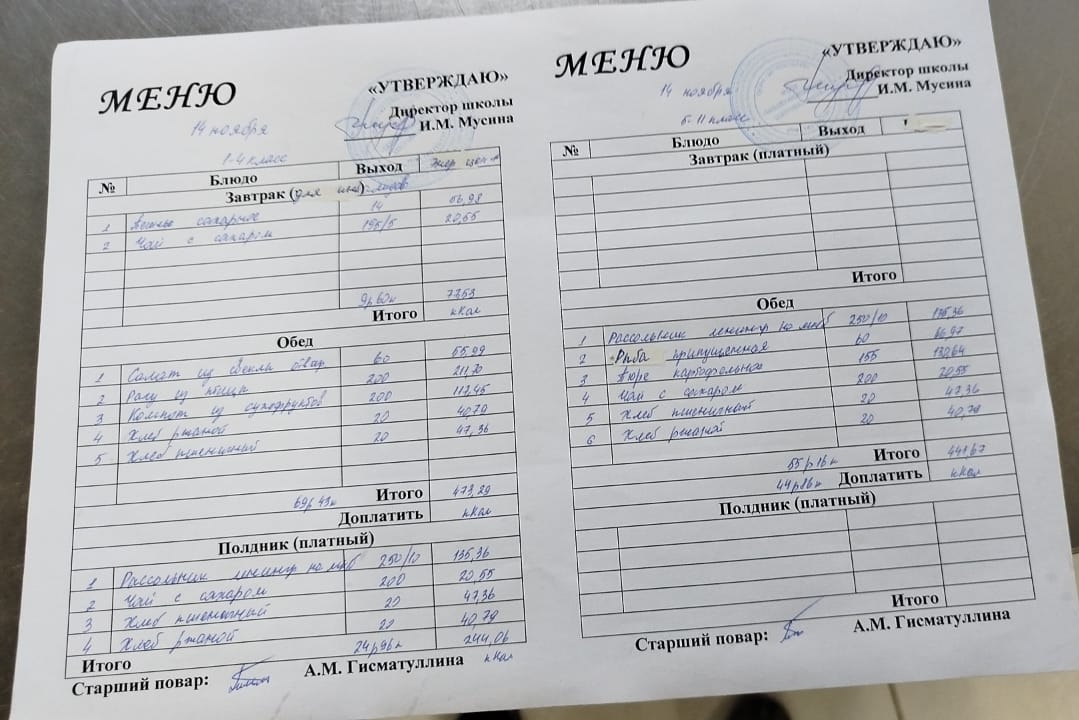 МЕНЮ
«УТВЕРЖДАЮ»
Директор школы
И.М. Мусина
14 ноября
1-4 класс
№ Блюдо Выход
Завтрак (для
1 Печенье сахарное 14 56,98
2 Чай с сахаром 195/5 20,55
9р60к 77,53
Итого кКал
Обед
1 Салат из свеклы отвар 60 55,99
2 Рагу из птицы 200 211,70
3 Компот из сухофруктов 200 117,45
4 Хлеб ржаной 20 40,79
5 Хлеб пшеничный 20 47,36
69р43к Итого 473,29
Доплатить кКал
Полдник (платный)
1 Рассольник ленингр на мкб 250/10 135,36
2 Чай с сахаром 200 20,55
3 Хлеб пшеничный 20 47,36
4 Хлеб ржаной 20 40,79
Итого 24р96к 244,06
кКал
Старший повар: А.М. Гисматуллина
МЕНЮ
«УТВЕРЖДАЮ»
Директор школы
И.М. Мусина
14 ноября
5-11 класс
№ Блюдо Выход
Завтрак (платный)
Итого
Обед
1 Рассольник ленингр на мкб 250/10 135,36
2 Рыба припущенная 60 66,97
3 Пюре картофельное 155 130,64
4 Чай с сахаром 200 20,55
5 Хлеб пшеничный 20 47,36
6 Хлеб ржаной 20 40,79
55р16к Итого 441,67
44р16к Доплатить кКал
Полдник (платный)
Итого
Старший повар: А.М. Гисматуллина